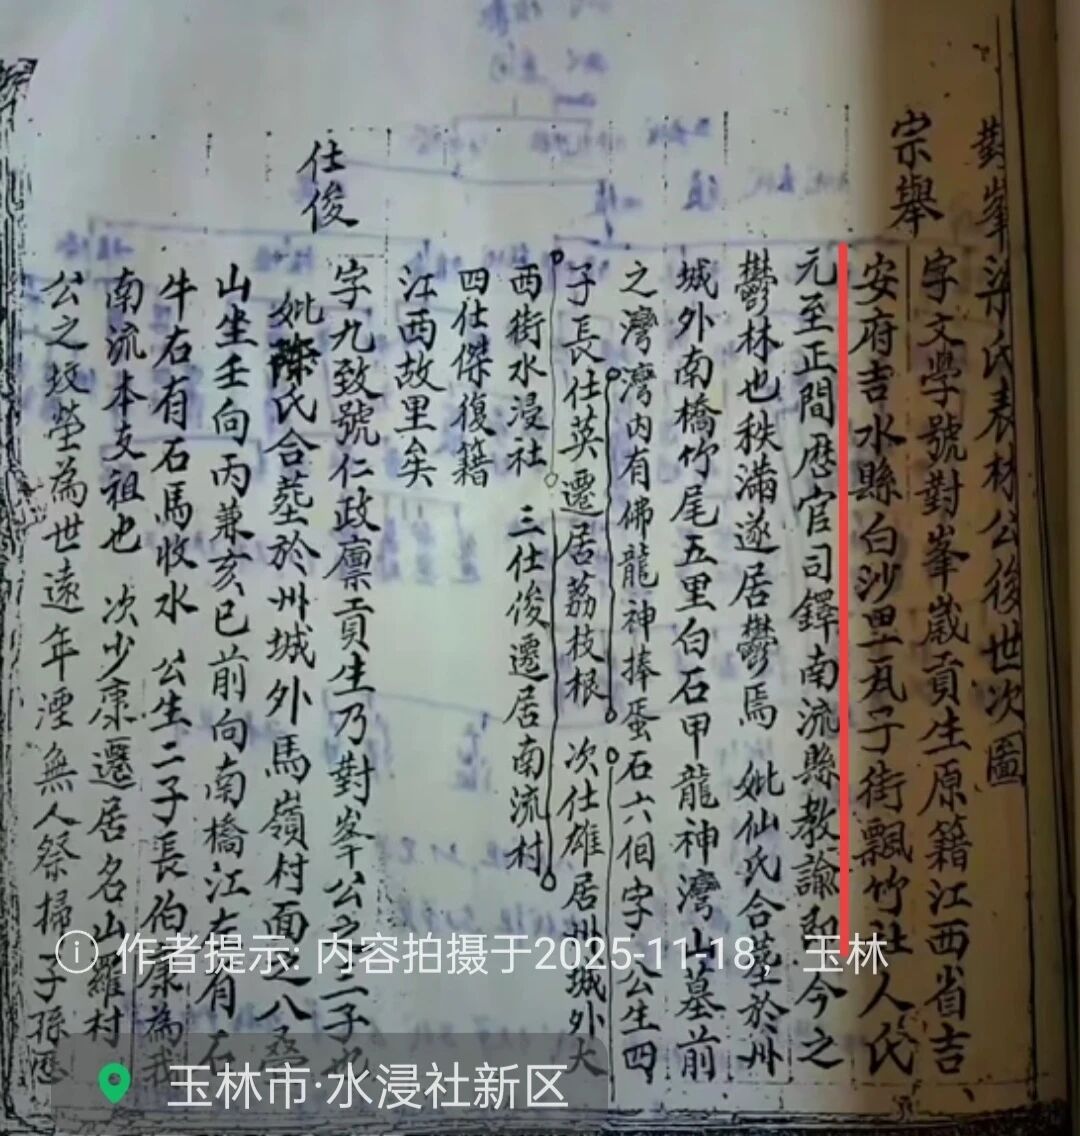 對峯梁氏表林公後世次圖
宗舉
字文學號對峯歲貢生原籍江西省吉
安府吉水縣白沙里瓦子街飄竹社人氏
元至正間歷官司鐸南流縣教諭即今之
鬱林也秩滿遂居鬱焉 妣仙氏合塟於州
城外南橋竹尾五里白石甲龍神灣山墓前
之灣灣內有佛龍神捧蛋石六個字 公生四
子長仕英遷居荔枝根 次仕雄居州城外大
西街水浸社 三仕俊遷居南流村
四仕傑復籍
江西故里矣
仕俊
字九致號仁政廪貢生乃對峯公之二子也
妣陳氏合塟於州城外馬嶺村面之八桑
山坐壬向丙兼亥已前向南橋江左有石
牛右有石馬收水 公生二子長伯康為我
南流本支祖也 次少康遷居名山羅村
公之坟塋為世遠年湮無人祭掃 子孫
作者提示: 内容拍摄于2025-11-18，玉林
玉林市·水浸社新区